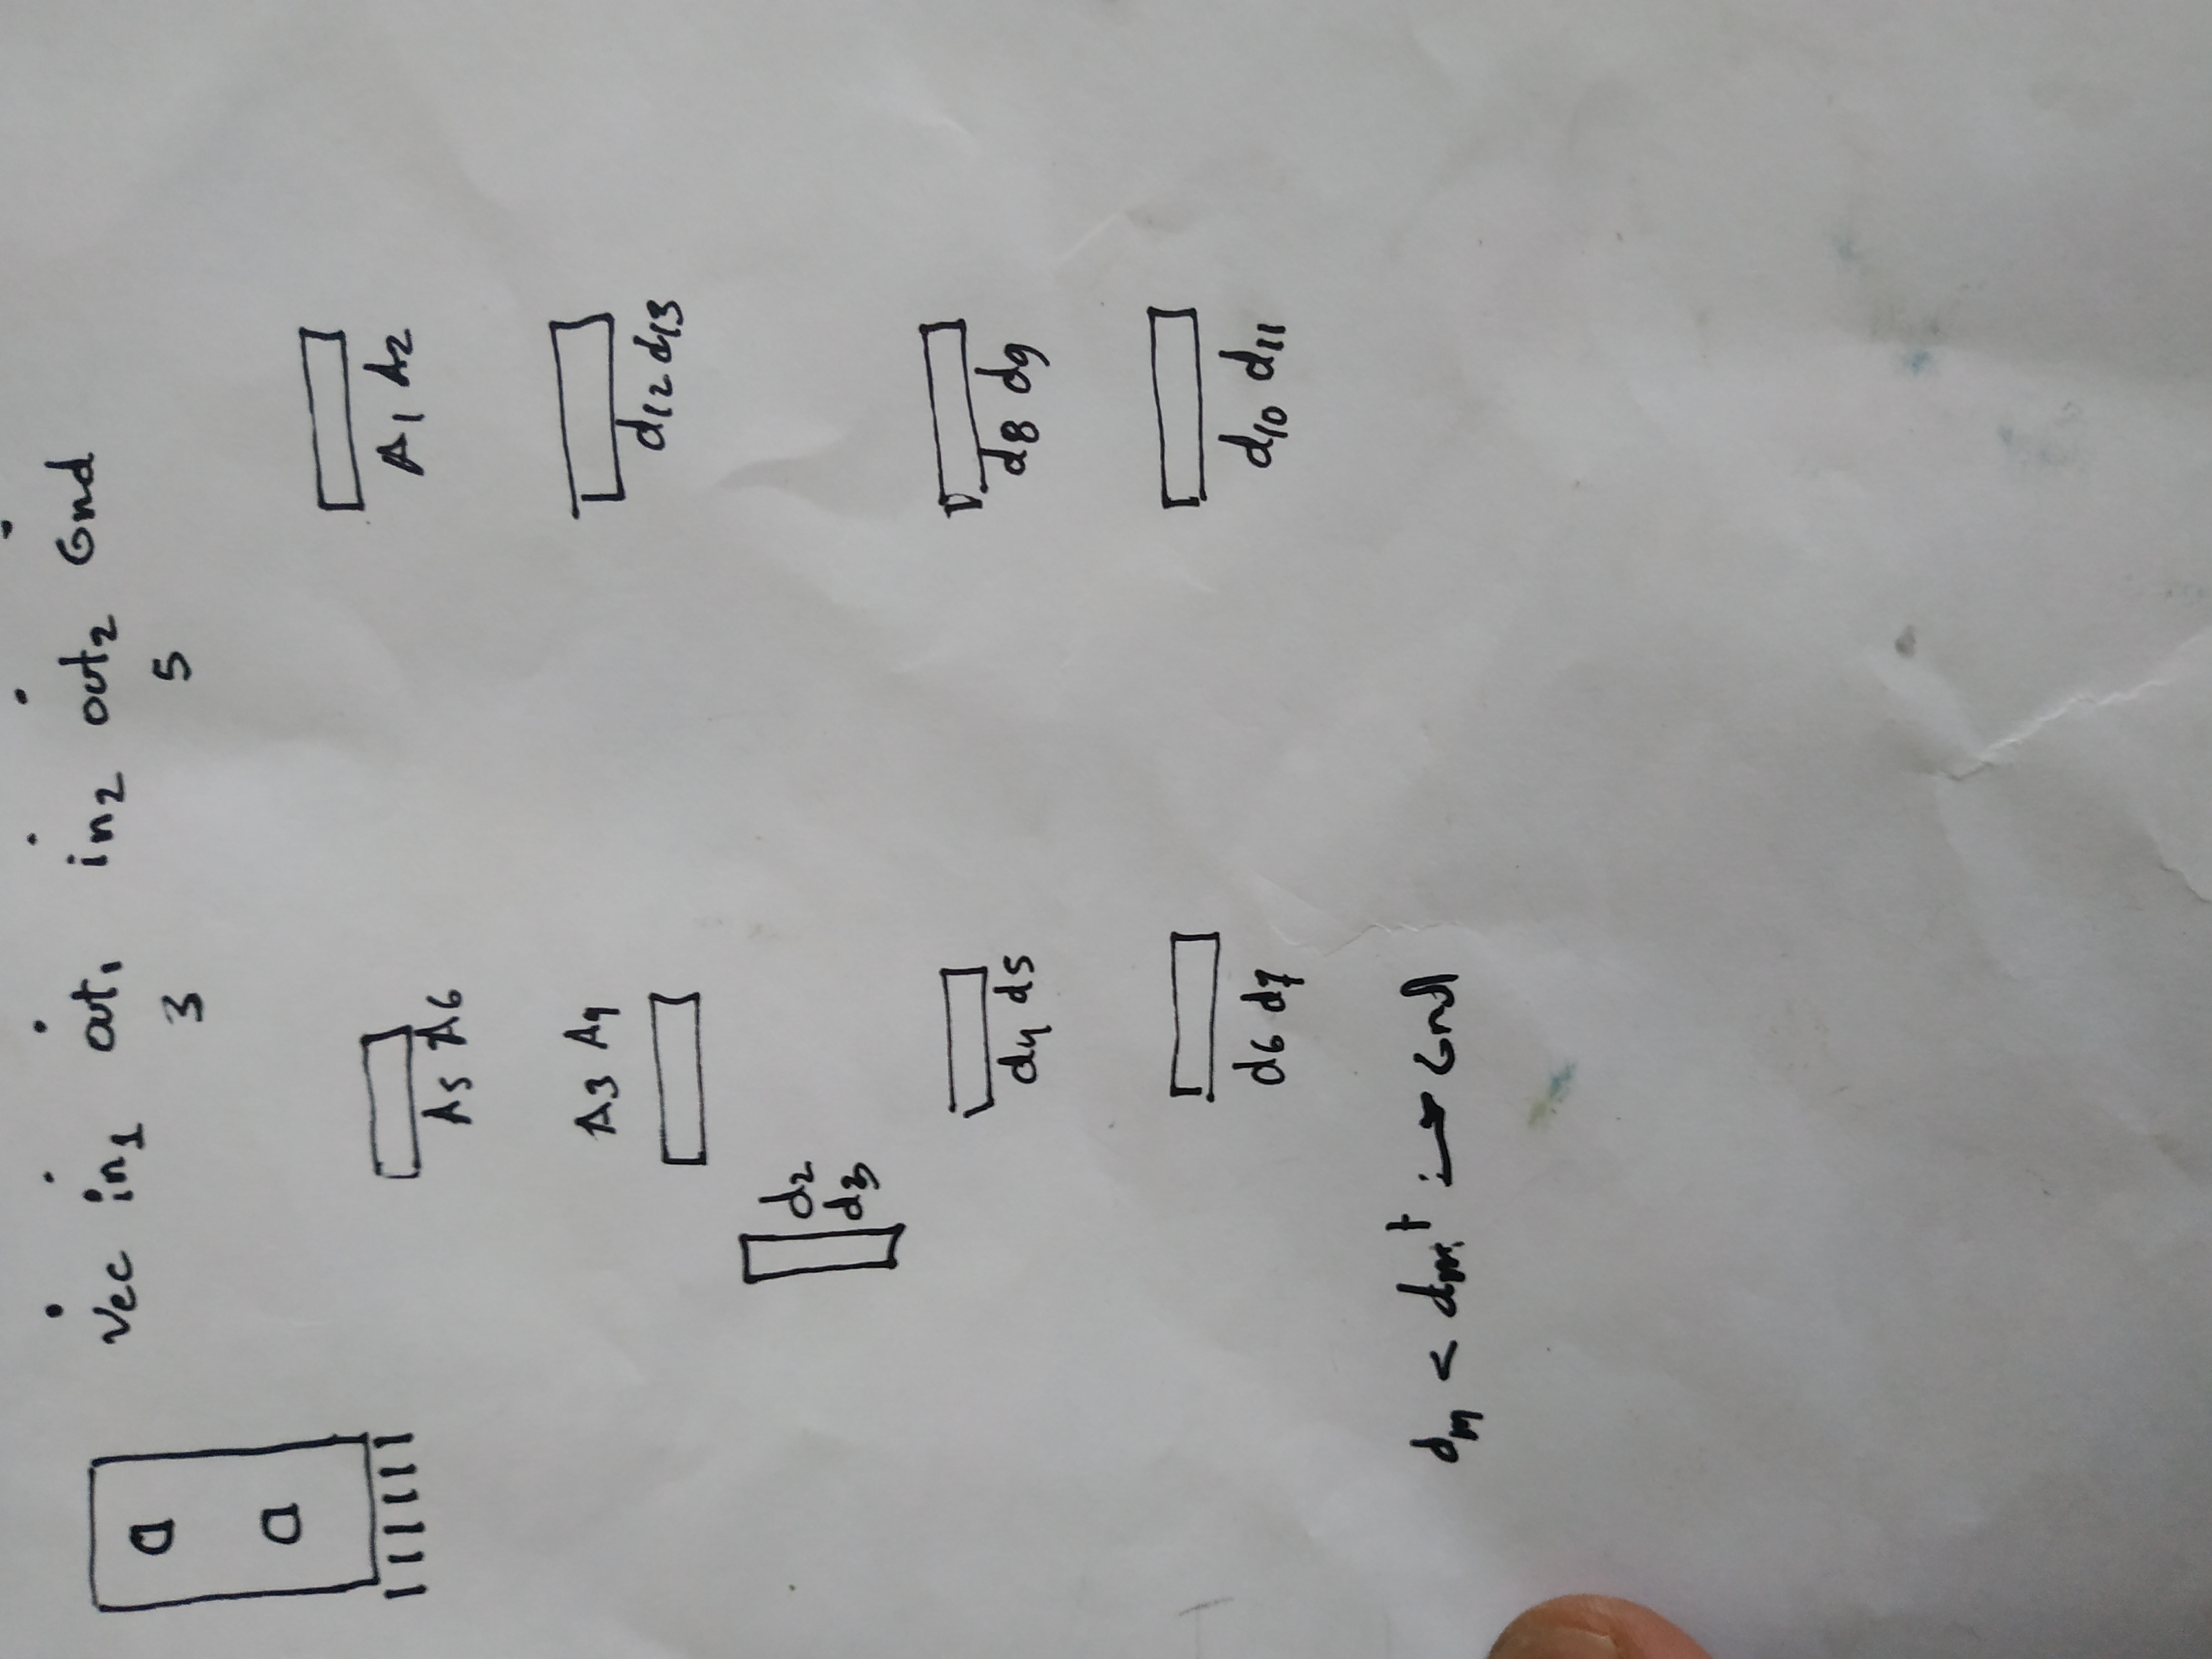 Vcc in1 out1 in2 out2 Gnd
3 5
A1 A2
A5 A6
A3 A4
d12 d13
d2
d3
d4 d5
d8 d9
d6 d7
d10 d11
Gnd